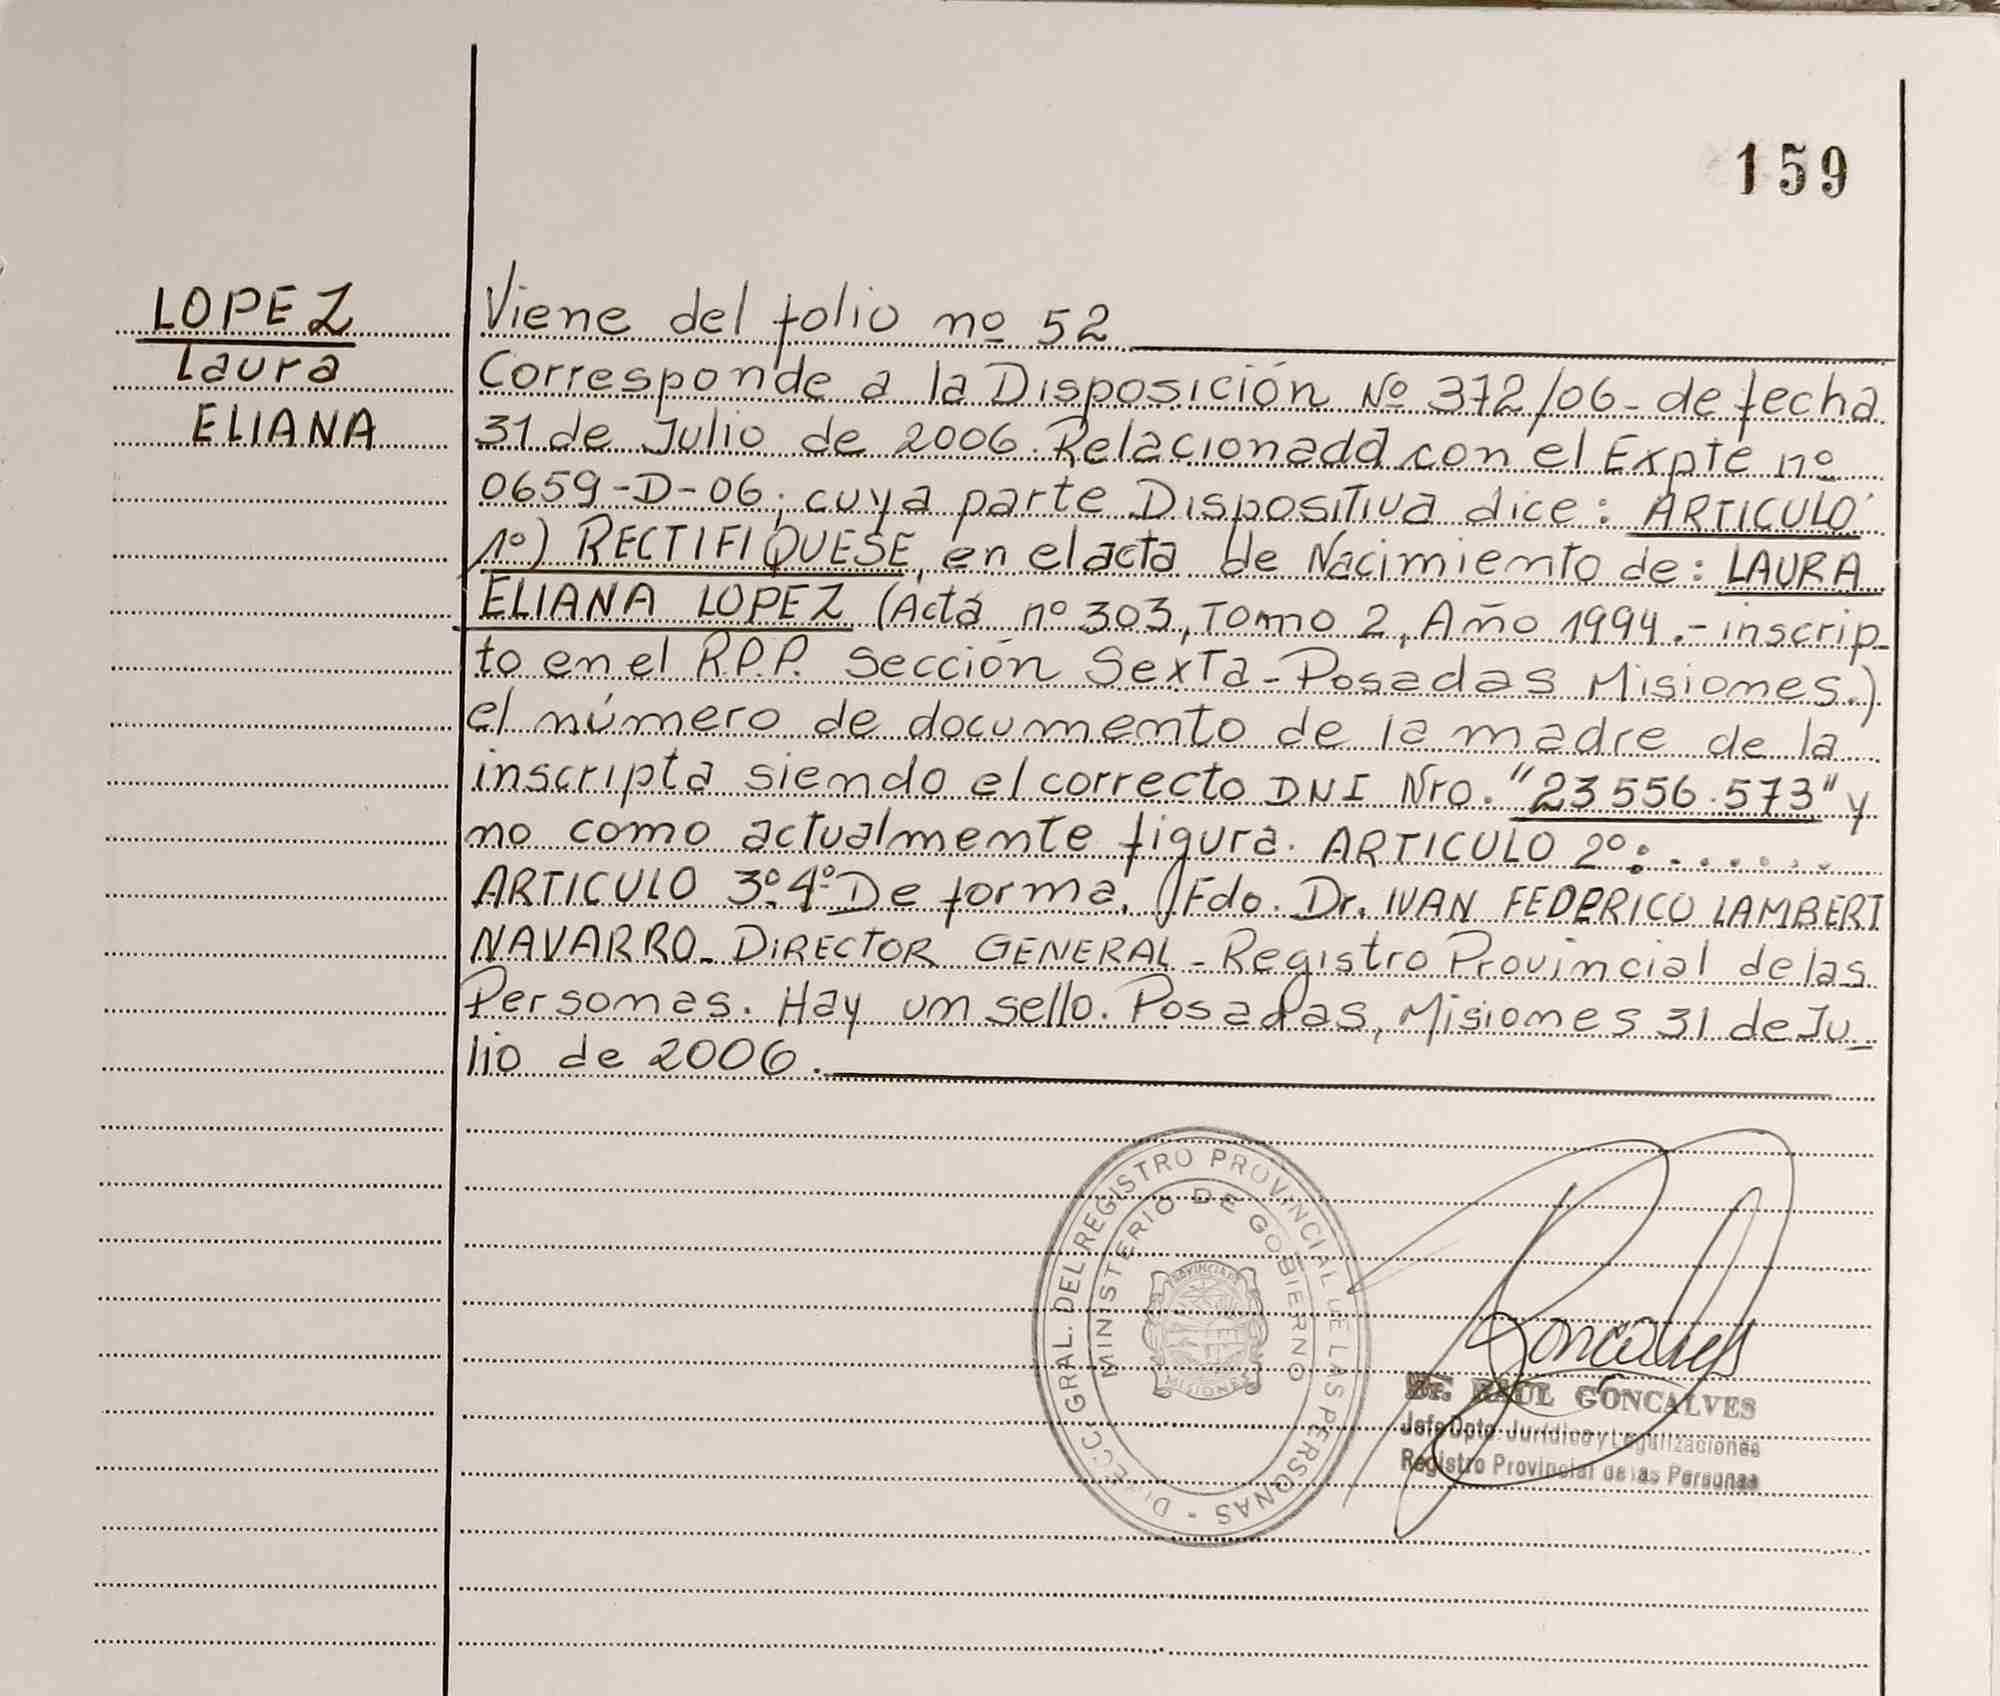 159
LOPEZ
Laura
ELIANA
Viene del folio nº 52
Corresponde a la Disposición Nº 372/06- de fecha
31 de Julio de 2006. Relacionada con el Expte nº
0659-D-06; cuya parte Dispositiva dice: ARTICULO
1º) RECTIFIQUESE, en el acta de Nacimiento de: LAURA
ELIANA LOPEZ (Acta nº 303, Tomo 2, Año 1994.- inscrip-
to en el R.P.P. Sección Sexta-Posadas Misiones.)
el número de documento de la madre de la
inscripta siendo el correcto DNI Nro. "23 556.573" y
no como actualmente figura. ARTICULO 2º:.......
ARTICULO 3º.4º De forma. Fdo. Dr. IVAN FEDERICO LAMBERT
NAVARRO- DIRECTOR GENERAL - Registro Provincial de las
Personas. Hay un sello. Posadas, Misiones 31 de Ju-
lio de 2006.
DIRECC. GRAL. DEL REGISTRO PROVINCIAL DE LAS PERSONAS -
MINISTERIO DE GOBIERNO
PROVINCIA DE
MISIONES
Goncalves
Dr. RAUL GONCALVES
Jefe Dpto. Jurídico y Legalizaciones
Registro Provincial de las Personas